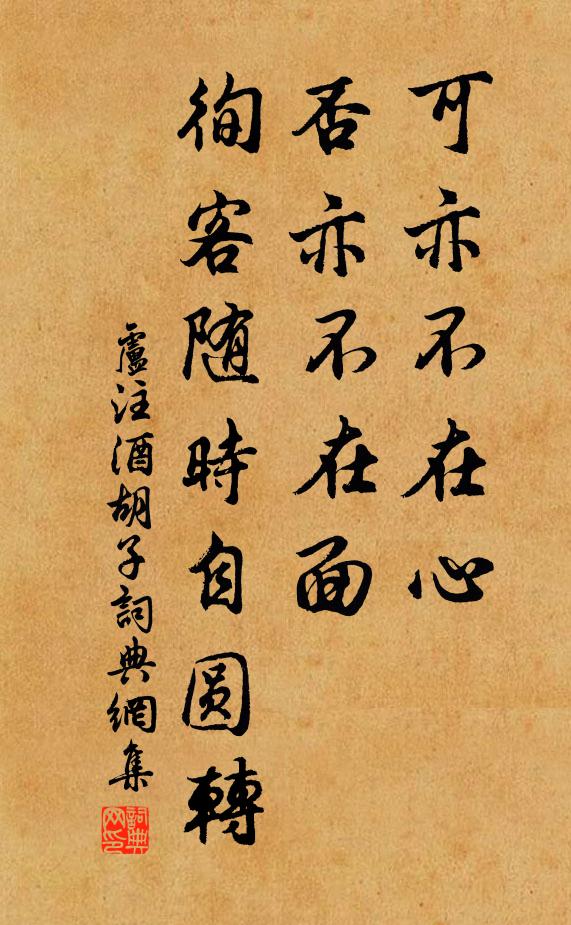 可亦不在心
否亦不在面
徇客随時自圓轉
盧注酒胡子詞典網集
詞典网印